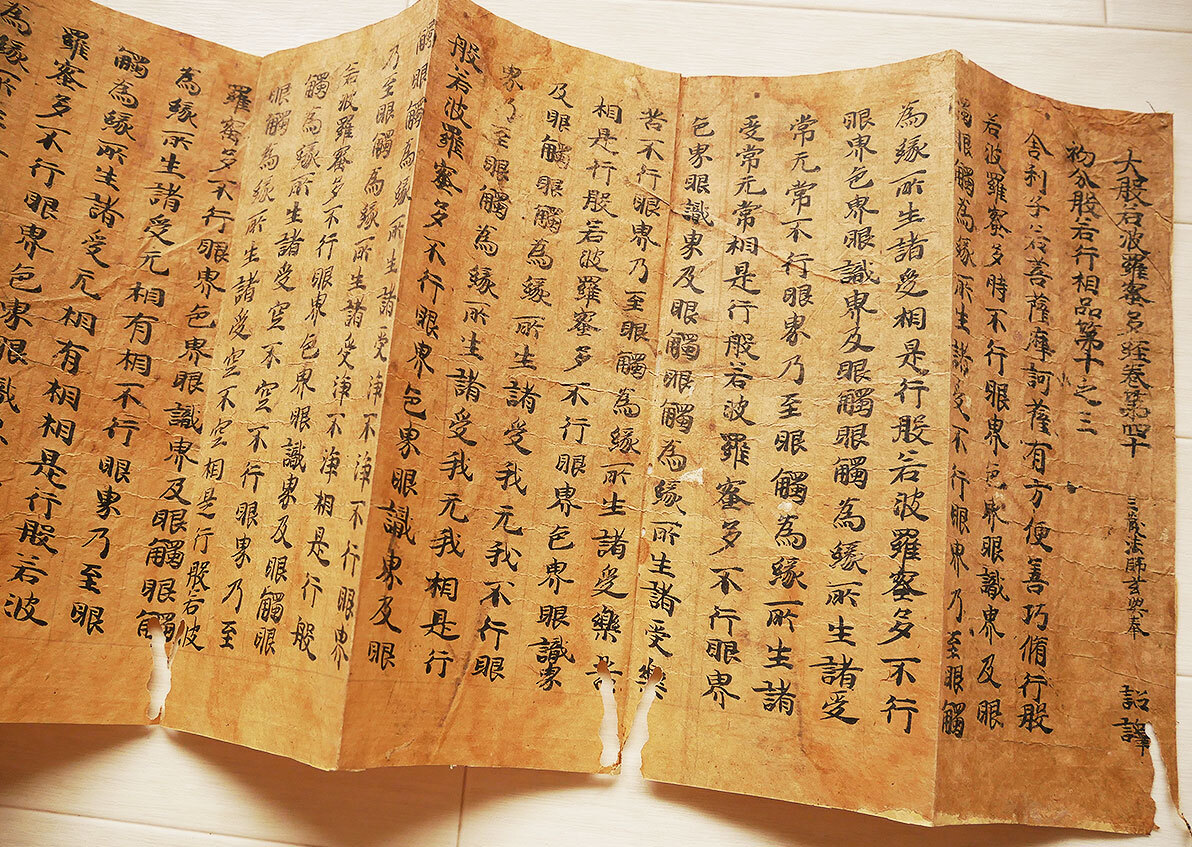 大般若波羅蜜多經卷第四十 三藏法師玄奘奉 詔譯
初分般若行相品第十之三
舍利子若菩薩摩訶薩有方便善巧脩行般
若波羅蜜多時不行眼界色界眼識界及眼
觸眼觸為緣所生諸受不行眼界乃至眼觸
為緣所生諸受相是行般若波羅蜜多不行
眼界色界眼識界及眼觸眼觸為緣所生諸受
常无常不行眼界乃至眼觸為緣所生諸
受常无常相是行般若波羅蜜多不行眼界
色界眼識界及眼觸眼觸為緣所生諸受樂
苦不行眼界乃至眼觸為緣所生諸受樂苦
相是行般若波羅蜜多不行眼界色界眼識界
及眼觸眼觸為緣所生諸受我无我不行眼
界乃至眼觸為緣所生諸受我无我相是行
般若波羅蜜多不行眼界色界眼識界及眼
觸眼觸為緣所生諸受淨不淨不行眼界
乃至眼觸為緣所生諸受淨不淨相是行般
若波羅蜜多不行眼界色界眼識界及眼觸眼
觸為緣所生諸受空不空不行眼界乃至
眼觸為緣所生諸受空不空相是行般若波
羅蜜多不行眼界色界眼識界及眼觸眼觸
為緣所生諸受无相有相不行眼界乃至眼
觸為緣所生諸受无相有相相是行般若波
羅蜜多不行眼界色界眼識
為緣所生